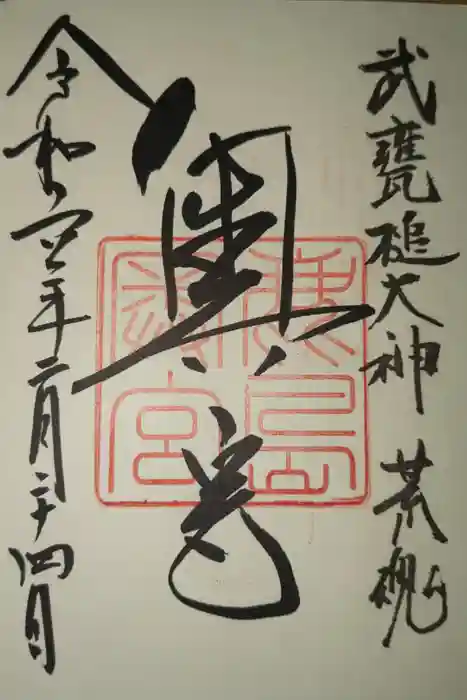 武甕槌大神 荒魂
奥宮
鹿島奥宮
令和五年二月二十四日